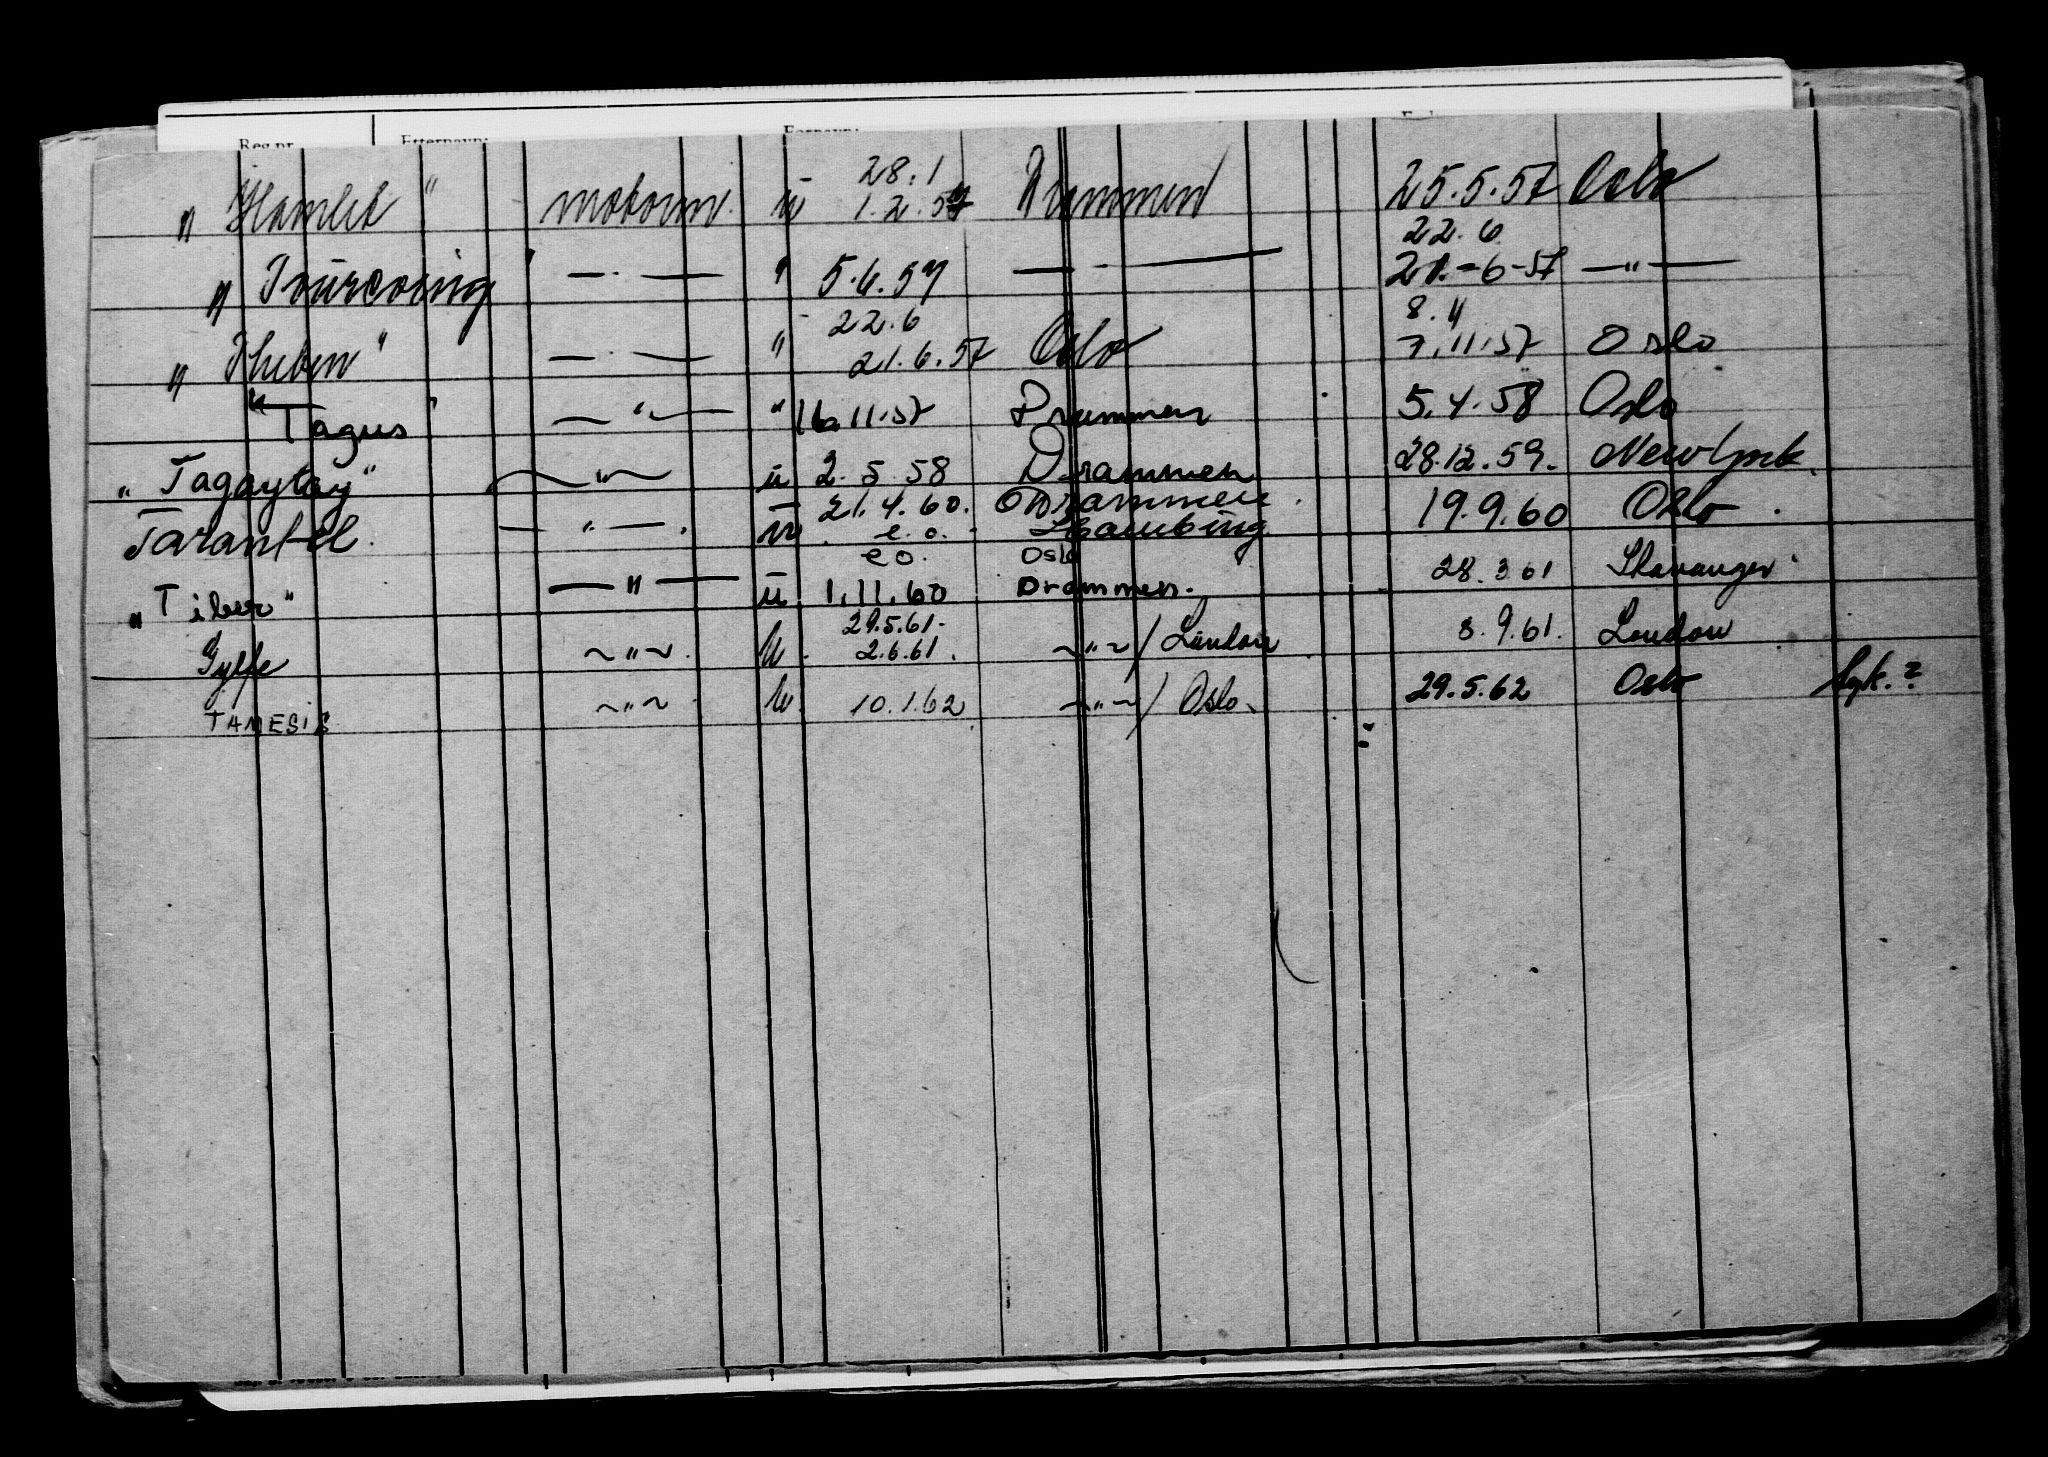 Reg.nr. Etternavn: Fornavn:
28.1
" Hamlet " motorm. u 1.2.57 Drammen 25.5.57 Oslo
22.6
" Tourcoing " — · — " 5.6.57 — · — 21.-6-57 —"—
22.6 8.11
" Theben " — · — " 21.6.57 Oslo 7.11.57 Oslo
" Tagus " —"— " 16.11.57 Drammen 5.4.58 Oslo
" Tagaytay " ~"~ u 2.5.58 Drammen 28.12.59. New York.
21.4.60. Drammen.
Tarantel. —"—. u. e.o. - Hamburg. 19.9.60 Oslo.
eo. Oslo
" Tiber " —"— u 1.11.60 Drammen. 28.3.61 Stavanger.
29.5.61.
Gylfe ~"~. u. 2.6.61. ~"~/London 8.9.61. London
TAMESIS ~"~ u. 10.1.62 ~"~/Oslo. 29.5.62 Oslo Syk.?